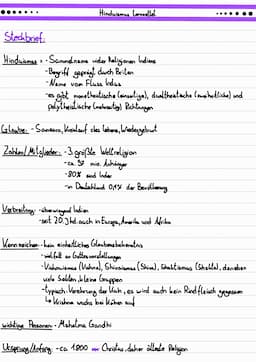 Hinduismus Lernzettel
Steckbrief:
Hinduismus: - Sammelname vieler Religionen Indiens
- Begriff geprägt durch Briten
- Name vom Fluss Indus
- es gibt monotheistische (eingottige), dualtheistische (zweiheitliche) und
polytheistische (mehrgottige) Richtungen
Glaube: - Samsara, Kreislauf des Lebens, Wiedergeburt
Zahlen/Mitglieder: - 3. größte Weltreligion
- ca. Anhänger
- 80% sind Inder
- in Deutschland 0,1% der Bevölkerung
Verbreitung: - überwiegend Indien
- seit 20. Jhd. auch in Europa, Amerika und Afrika
Kennzeichen: - kein einheitliches Glaubensbekenntnis
- vielfalt an Gottesvorstellungen
- Vishnuismus (Vishnu), Shivaismus (Shiva), Shaktismus (Shakti), daneben
viele Sekten, kleine Gruppen
- typisch: Verehrung der Kuh, es wird auch kein Rindfleisch gegessen
↳ Krishna wuchs bei Kühen auf
wichtige Personen: - Mahatma Gandhi
Ursprung/Anfang: - ca. 1800 vor Christus, daher älteste Religion